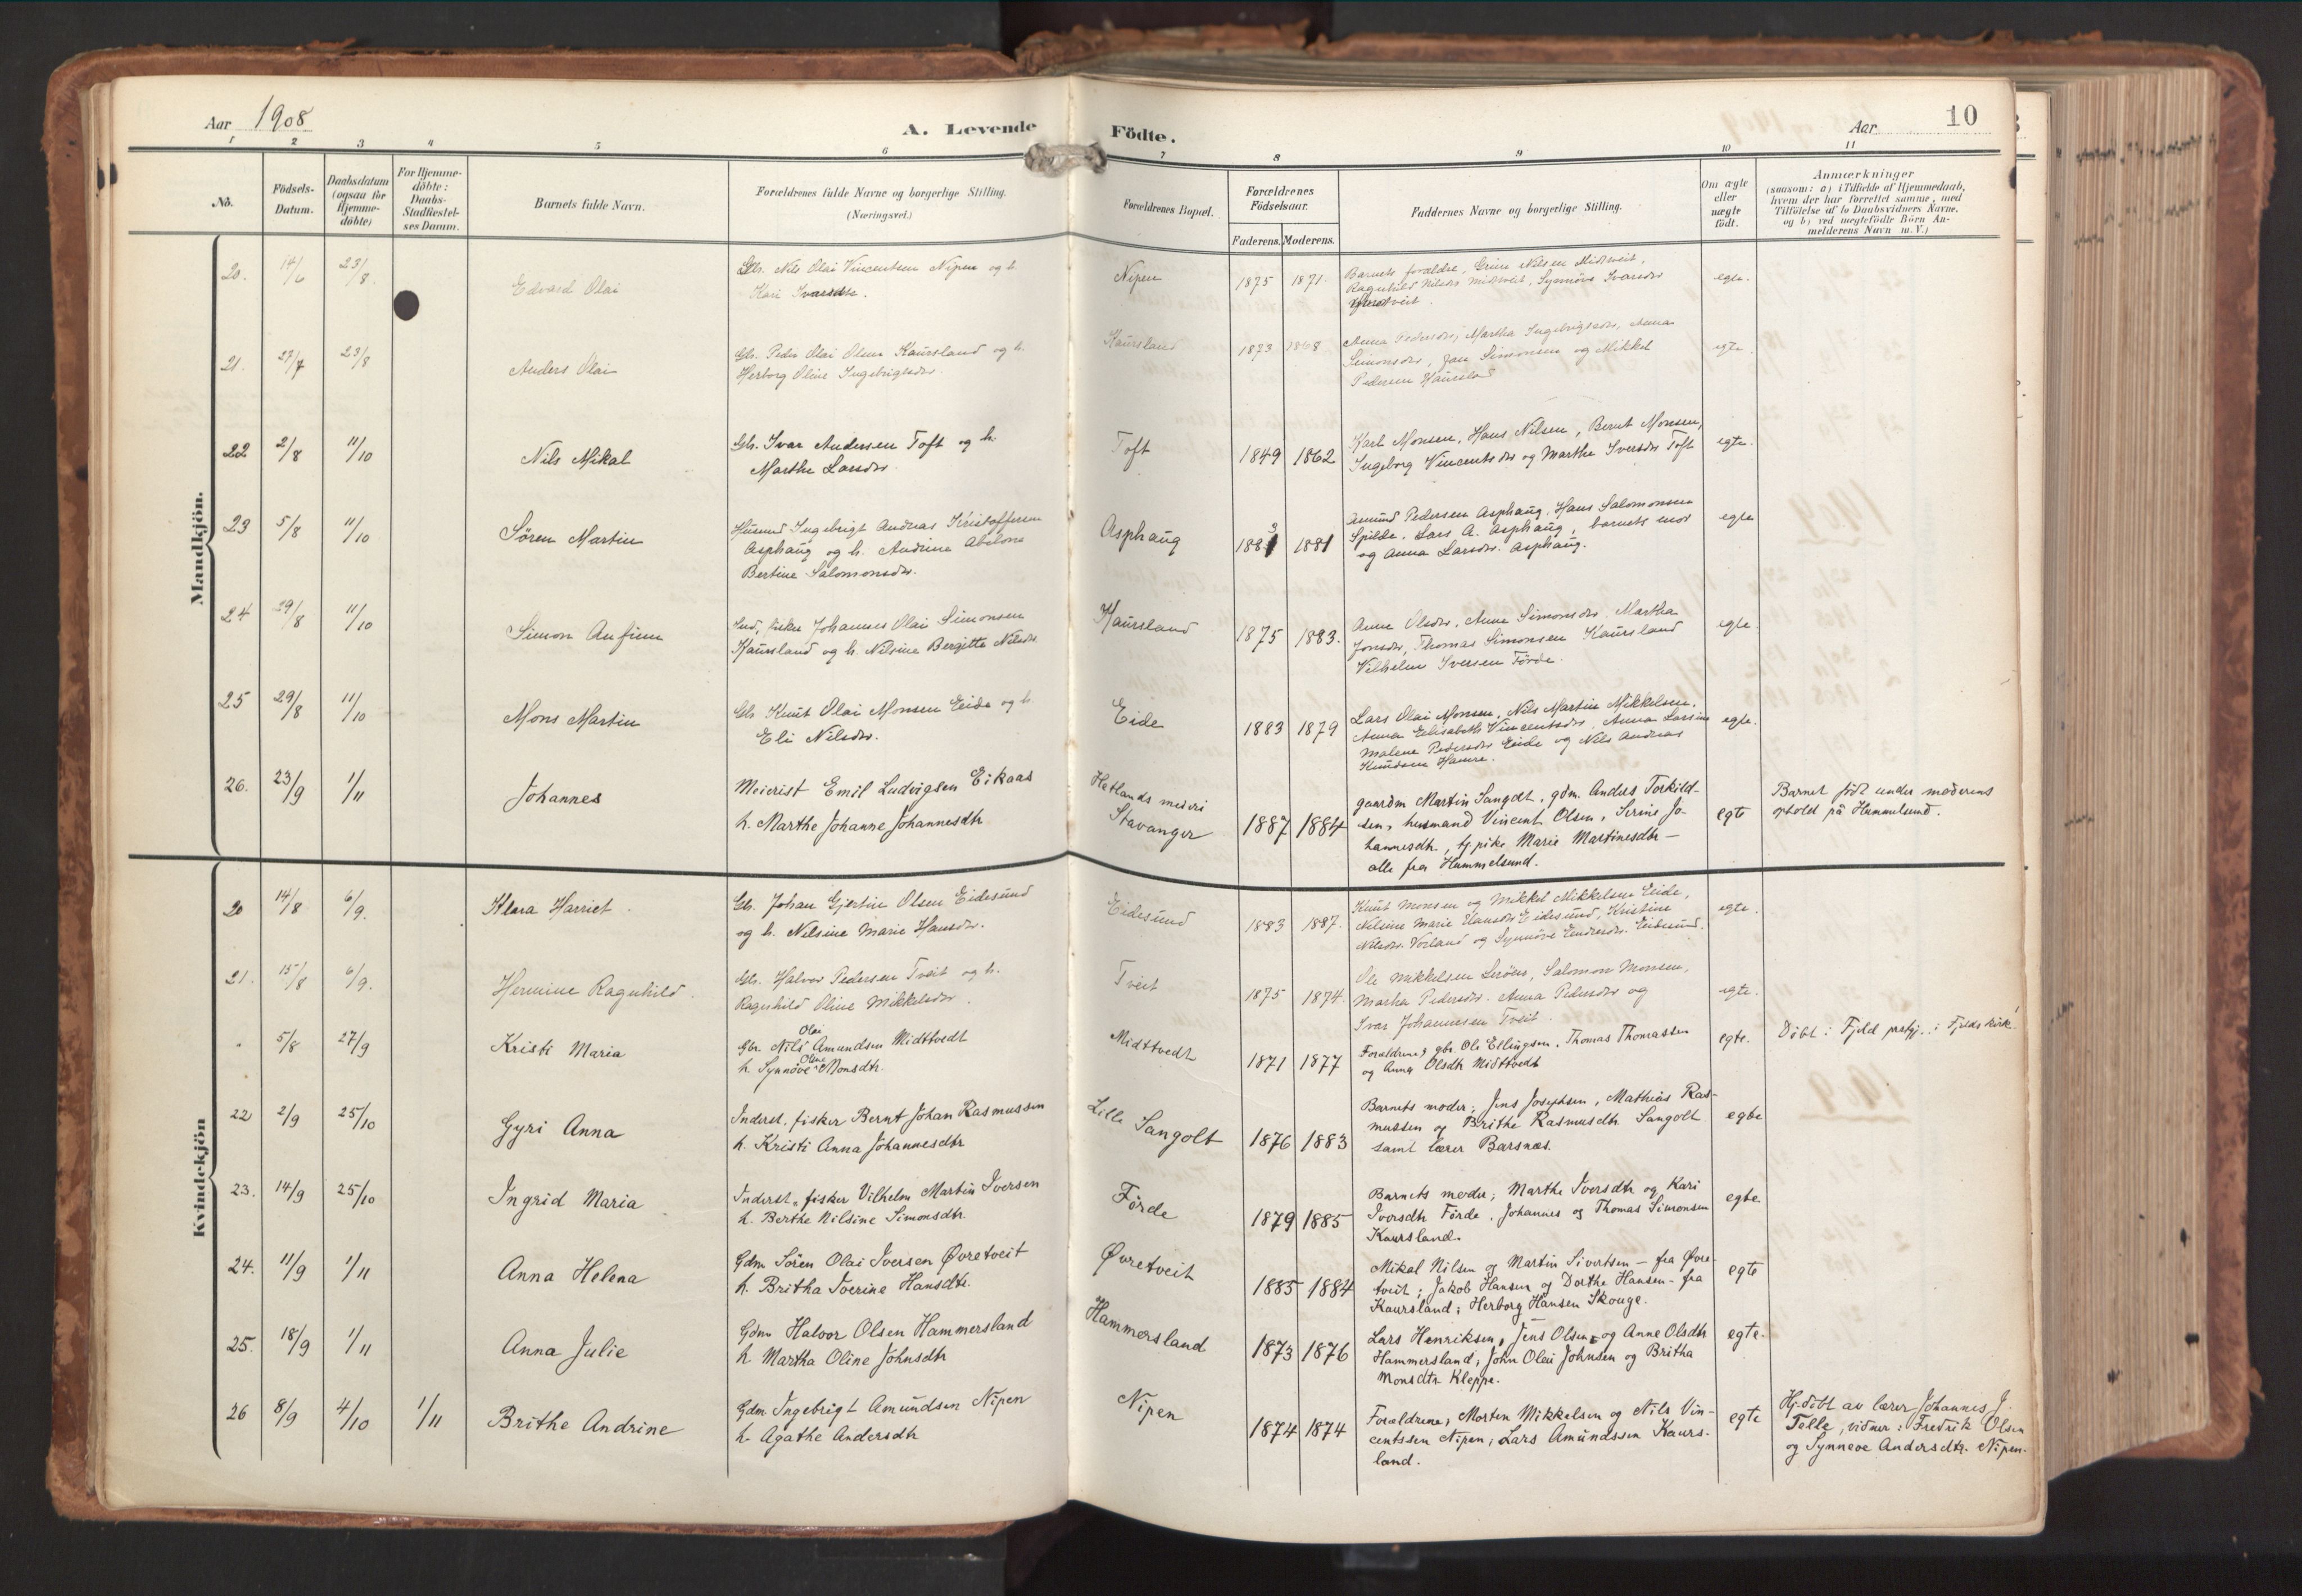 Aar 1908
A. Levende
Födte.
Aar
10
1 2 3 4 5 6 7 8 9 10 11
No.
Födsels-
Datum.
Daabsdatum
(ogsaa for
Hjemme-
döbte)
For Hjemme-
döbte:
Daabs-
Stadfæstel-
ses Datum.
Barnets fulde Navn.
Forældrenes fulde Navne og borgerlige Stilling.
(Næringsvei.)
Forældrenes Bopæl.
Forældrenes
Födselsaar.
Faderens. Moderens.
Faddernes Navne og borgerlige Stilling.
Om ægte
eller
uægte
födt.
Anmærkninger
(saasom: a) i Tilfælde af Hjemmedaab,
hvem der har forrettet samme, med
Tilföielse af to Daabsvidners Navne.
og b) ved uægtefödte Börn An-
melderens Navn m. V.)
Mandkjön.
20. 14/6 23/8. Edvard Olai
Gbr. Nils Olai Vincentsen Nipen og h.
Kari Ivarsdtr.
Nipen 1875 1871.
Barnets forældre, Nilsen Midtveit,
Ragnhild Nilsdtr Midtveit, Synnöve Ivarsdtr
egte.
21. 27/7 23/8 Anders Olai
Gbr. Peder Olai Olsen Kaursland og h.
Herborg Oline Ingebrigtsdtr.
Kaursland 1873 1868
Anna Pedersdtr, Martha Ingebrigtsdtr, Anna
Simonsdtr, Jan Simonsen og Mikkel
Pedersen Kaursland
egte
22 2/8 11/10 Nils Mikal
Gbr. Ivar Andersen Toft og h.
Marthe Larsdtr.
Toft 1849 1862
Karl Monsen, Hans Nilsen, Bernt Monsen,
Ingeborg Vincentsdtr og Marthe Iversdtr Toft
egte.
23 5/8 11/10 Søren Martin
Husmd Ingebrigt Andreas Kristoffersen
Asphaug og h. Andrine Abelone
Bertine Salomonsdtr.
Asphaug 1883 1881
Amund Pedersen Asphaug, Hans Salomonsen
Spilde, Lars A. Asphaug, barnets mor
og Anna Larsdtr. Asphaug.
egte
24 29/8 11/10 Simon Anfinn
Ind. fisker Johannes Olai Simonsen
Kaursland og h. Nilsine Bergitte Nilsdtr
Kaursland 1875 1883.
Anne Olsdtr, Anne Simonsdtr, Martha
Jonsdtr, Thomas Simonsen Kaursland
Vilhelm Iversen Förde.
egte.
25 29/8 11/10 Mons Martin
Gbr Knut Olai Monsen Eide og h
Eli Nilsdtr.
Eide 1883 1879
Lars Olai Monsen, Nils Martin Mikkelsen,
Anna Elisabeth Vincentsdtr, Anna Larsine
Malene Pedersdtr Eide og Nils Andreas
Knudsen Hamre.
egte.
26. 23/9 1/11 Johannes
Meierist Emil Ludvigsen Eikaas
h. Marthe Johanne Johannesdtr
Hetlands meieri
Stavanger 1887 1884
gaardm Martin Sangolt, gdm. Anders Torkild-
sen, husmand Vincent Olsen, Serine Jo-
hannesdtr., tj.pike Marie Martinesdtr –
alle fra Hummelsund.
egte
Barnet født under moderens
ophold på Hummelsund.
Kvindekjön
20 14/8 6/9. Klara Harriet.
Gbr. Johan Gjertin Olsen Eidesund
og h. Nilsine Marie Hansdtr.
Eidesund 1883 1887.
Knut Monsen og Mikkel Mikkelsen Eide,
Nilsine Marie Hansdtr Eidesund, Kristine
Nilsdtr. Vorland og Synnöve Endresdtr. Eidesund.
egte.
21. 15/8 6/9. Hermine Ragnhild.
Gbr. Halvor Pedersen Tveit og h.
Ragnhild Oline Mikkelsdtr.
Tveit 1875 1874.
Ole Mikkelsen Leröen, Salomon Monsen,
Martha Pedersdtr. Anna Pedersdtr og
Ivar Johannesen Tveit.
egte.
5/8 27/9 Kristi Maria
Olai
Gbr. Nils Amundsen Midttvedt
Oline
h. Synnøve Monsdtr.
Midttvedt 1871 1877
Forældrene, gbr. Ole Ellingsen, Thomas Thomassen
og Anna Olsdtr Midttvedt
egte.
Døbt i Fjeld prstgj. i Fjelds kirke.
22 2/9 25/10 Gyri Anna
Inderst, fisker Bernt Johan Rasmussen
h. Kristi Anna Johannesdtr
Lille Sangolt 1876 1883
Barnets moder; Jens Josefsen, Mathias Ras-
mussen og Brithe Rasmusdtr Sangolt
samt lærer Barsnæs.
egte
23. 14/9 25/10 Ingrid Maria
Inderst, fisker Vilhelm Martin Iversen
h. Berthe Nilsine Simonsdtr.
Førde 1879 1885
Barnets moder; Marthe Iversdtr og Kari
Iversdtr Førde. Johannes og Thomas Simonsen
Kaursland.
egte.
24. 11/9 1/11 Anna Helena
Gdm Sören Olai Iversen Øvretveit
h. Britha Iverine Hansdtr.
Øvretveit 1885 1884
Mikal Nilsen og Martin Sivertsen – fra Øvre-
tveit; Jakob Hansen og Dorthe Hansen – fra
Kaursland; Herborg Hansen Skouge.
egte
25. 18/9 1/11 Anna Julie
Gdm Halvor Olsen Hammersland
h Martha Oline Johnsdtr
Hammersland 1873 1876
Lars Henriksen, Jens Olsen og Anne Olsdtr
Hammersland; John Olai Johnsen og Britha
Monsdtr Kleppe.
egte.
26 8/9 4/10 1/11 Brithe Andrine
Gdm. Ingebrigt Amundsen Nipen
h. Agathe Andersdtr
Nipen 1874 1874
Forældrene, Morten Mikkelsen og Nils Vin-
centssen Nipen; Lars Amundssen Kaurs-
land.
egte
Hj.døbt av lærer Johannes J.
Telle, vidner: Fredrik Olsen
og Synneve Andersdtr. Nipen.